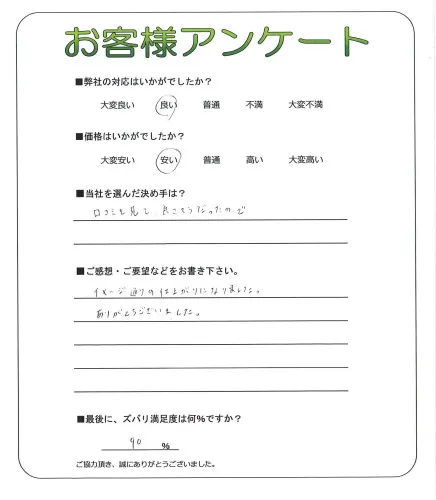 お客様アンケート
■弊社の対応はいかがでしたか?
大変良い 良い 普通 不満 大変不満
■価格はいかがでしたか?
大変安い 安い 普通 高い 大変高い
■当社を選んだ決め手は?
口コミを見て、良さそうだったので
■ご感想・ご要望などをお書き下さい。
イメージ通りの仕上がりになりました。
ありがとうございました。
■最後に、ズバリ満足度は何%ですか?
90 %
ご協力頂き、誠にありがとうございました。